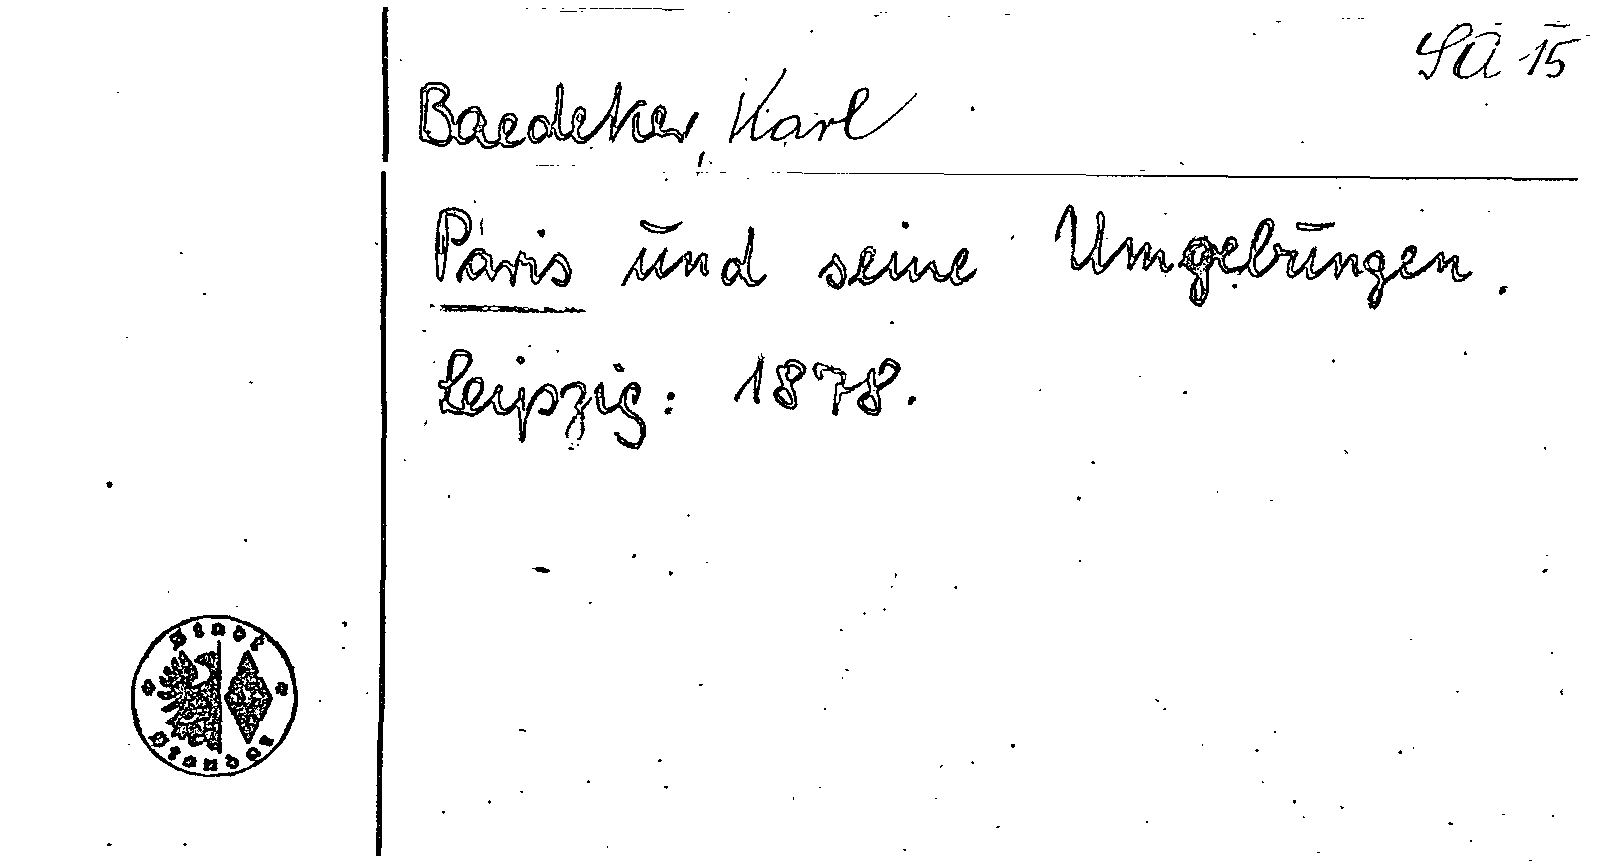 SA 15
Baedeker, Karl
Paris und seine Umgebungen.
Leipzig: 1878.
Stadt